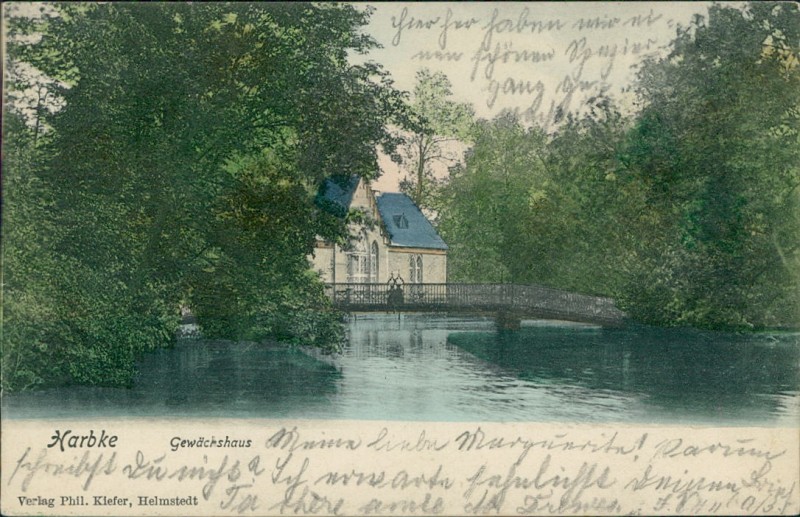 hierher haben wir ei-
nen schönen Spazier
gang ge
macht
Harbke
Gewächshaus
Meine liebe Marguerite! Warum
schreibst Du nicht? Ich erwarte sehnlichst Deinen Brief
Verlag Phil. Kiefer, Helmstedt